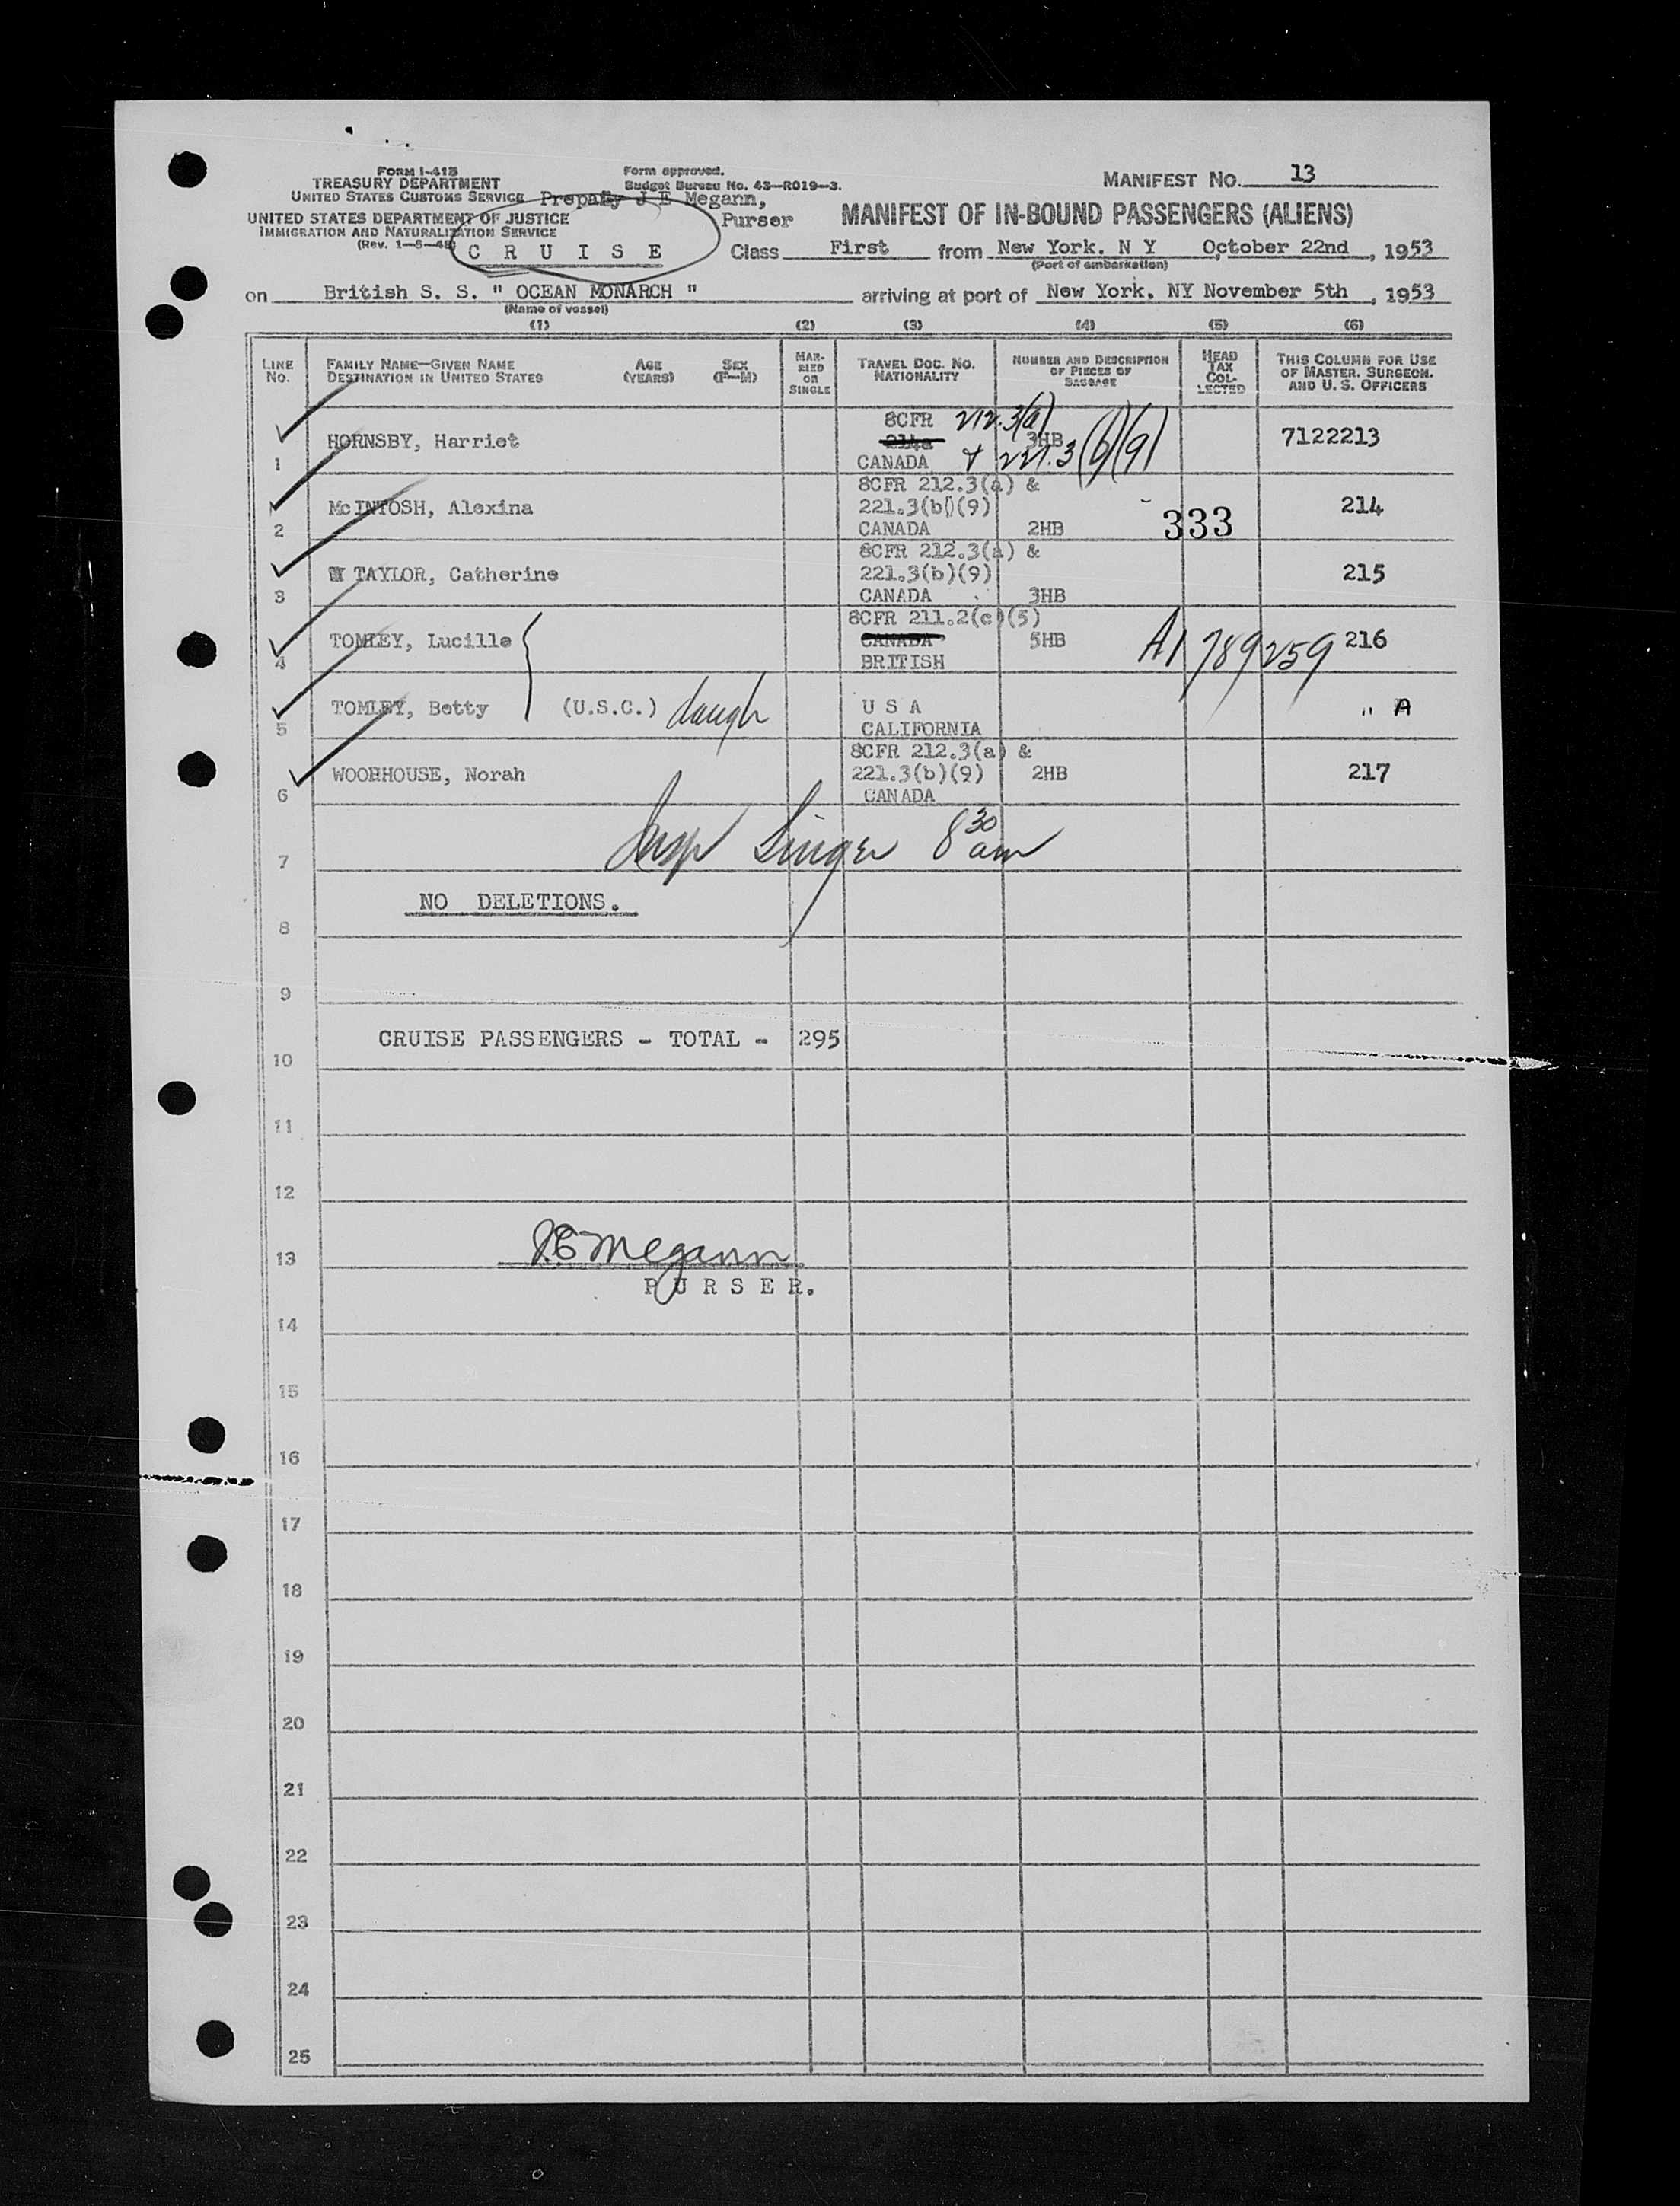 FORM I-415
TREASURY DEPARTMENT
UNITED STATES CUSTOMS SERVICE
UNITED STATES DEPARTMENT OF JUSTICE
IMMIGRATION AND NATURALIZATION SERVICE
(Rev. 1-5-48)
Form approved.
Budget Bureau No. 43—R019—3.
J E Megann,
Purser
C R U I S E
MANIFEST NO. 13
MANIFEST OF IN-BOUND PASSENGERS (ALIENS)
Class First from New York. N Y October 22nd, 1953
(Port of embarkation)
on British S. S. " OCEAN MONARCH " arriving at port of New York. NY November 5th, 1953
(Name of vessel)
(1) (2) (3) (4) (5) (6)
LINE NO.
FAMILY NAME—GIVEN NAME
DESTINATION IN UNITED STATES
AGE (YEARS)
SEX (F—M)
MARRIED OR SINGLE
TRAVEL DOC. NO. NATIONALITY
NUMBER AND DESCRIPTION OF PIECES OF BAGGAGE
HEAD TAX COLLECTED
THIS COLUMN FOR USE OF MASTER, SURGEON, AND U. S. OFFICERS
8CFR 212.3(a)
HORNSBY, Harriet 3HB 7122213
1 CANADA + 221.3(b)(9)
8CFR 212.3(a) &
McINTOSH, Alexina 221.3(b)(9) 214
2 CANADA 2HB 333
8CFR 212.3(a) &
TAYLOR, Catherine 221.3(b)(9) 215
3 CANADA 3HB
8CFR 211.2(c)(5)
TOMLEY, Lucille CANADA 5HB A1 789259 216
4 BRITISH
TOMLEY, Betty (U.S.C.) daugh U S A " A
5 CALIFORNIA
8CFR 212.3(a) &
WOODHOUSE, Norah 221.3(b)(9) 2HB 217
6 CANADA
Insp Singer 8 30 am
7
NO DELETIONS.
8
9
CRUISE PASSENGERS - TOTAL - 295
10
11
12
J.E. Megann
13
P U R S E R.
14
15
16
17
18
19
20
21
22
23
24
25